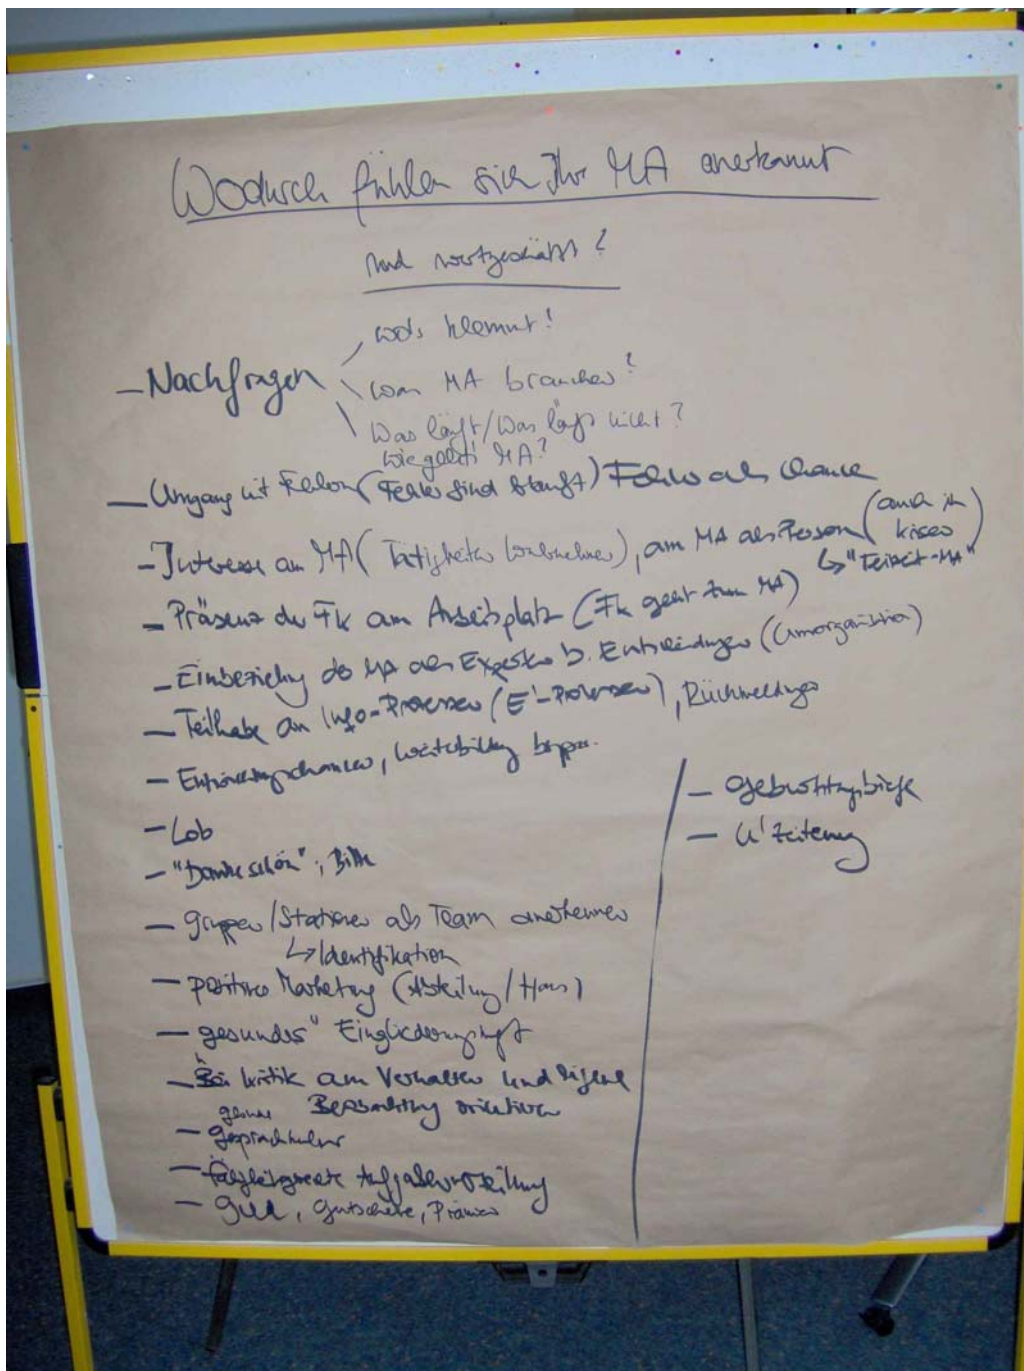 Wodurch fühlen sich Ihre MA anerkannt
und wertgeschätzt?
was klemmt!
– Nachfragen
was MA brauchen?
Was läuft/Was läuft nicht?
wie geht's MA?
– Umgang mit Fehlern (Fehler sind ) Fehler als Chance
– Interesse am MA (Tätigkeiten wahrnehmen), am MA als Person (auch in
Krisen)
↳ "Teilzeit-MA"
– Präsenz der Fk am Arbeitsplatz (Fk geht zum MA)
– Einbeziehung der MA als Experten b. Entscheidungen (Umorganisation)
– Teilhabe an Info-Prozessen (E'-Prozessen), Rückmeldungen
– Entwicklungschancen, Weiterbildung
– Lob
– "Danke schön", Bitte
– Gruppen/Stationen als Team anerkennen
↳ Identifikation
– positives Marketing (Abteilung/Haus)
– gesundes"
– Bei Kritik am Verhalten und
Beobachtung orientieren
– Gesprächskultur
– Aufgabenverteilung
– Geld, Gutscheine, Prämien
– Geburtstagsbriefe
– U'Zeitung